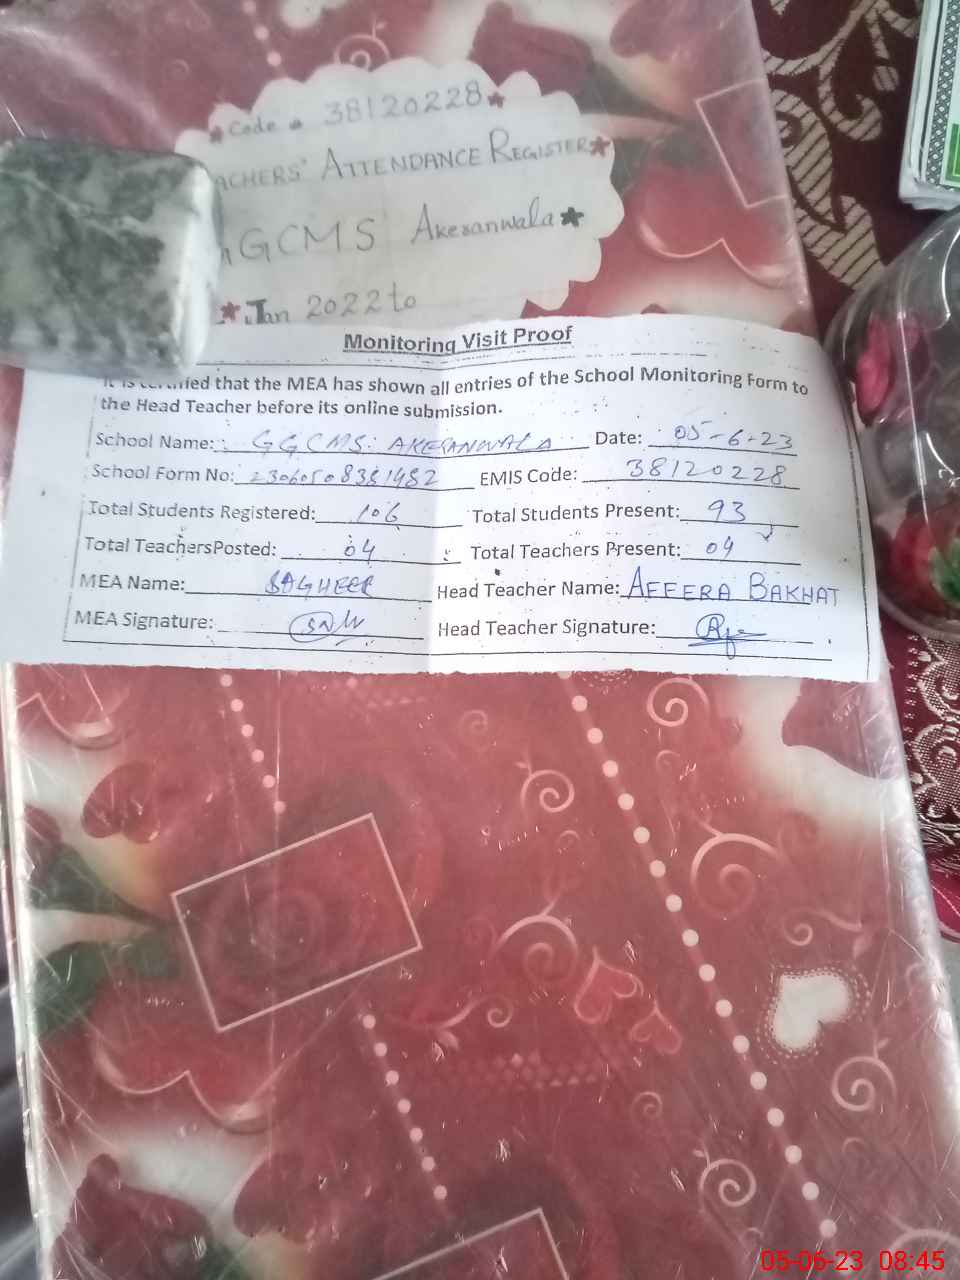 Code 38120228
ACHERS' ATTENDANCE REGISTER
GCMS Akeranwala
Jan 2022 to
Monitoring Visit Proof
It is certified that the MEA has shown all entries of the School Monitoring Form to
the Head Teacher before its online submission.
School Name: GGCMS. AKERANWALA Date: 05-6-23
School Form No: EMIS Code: 38120228
Total Students Registered: 106 Total Students Present: 93
Total TeachersPosted: 04 Total Teachers Present: 04
MEA Name: SAGHEER Head Teacher Name: AFEERA BAKHAT
MEA Signature: Head Teacher Signature:
05-06-23 08:45